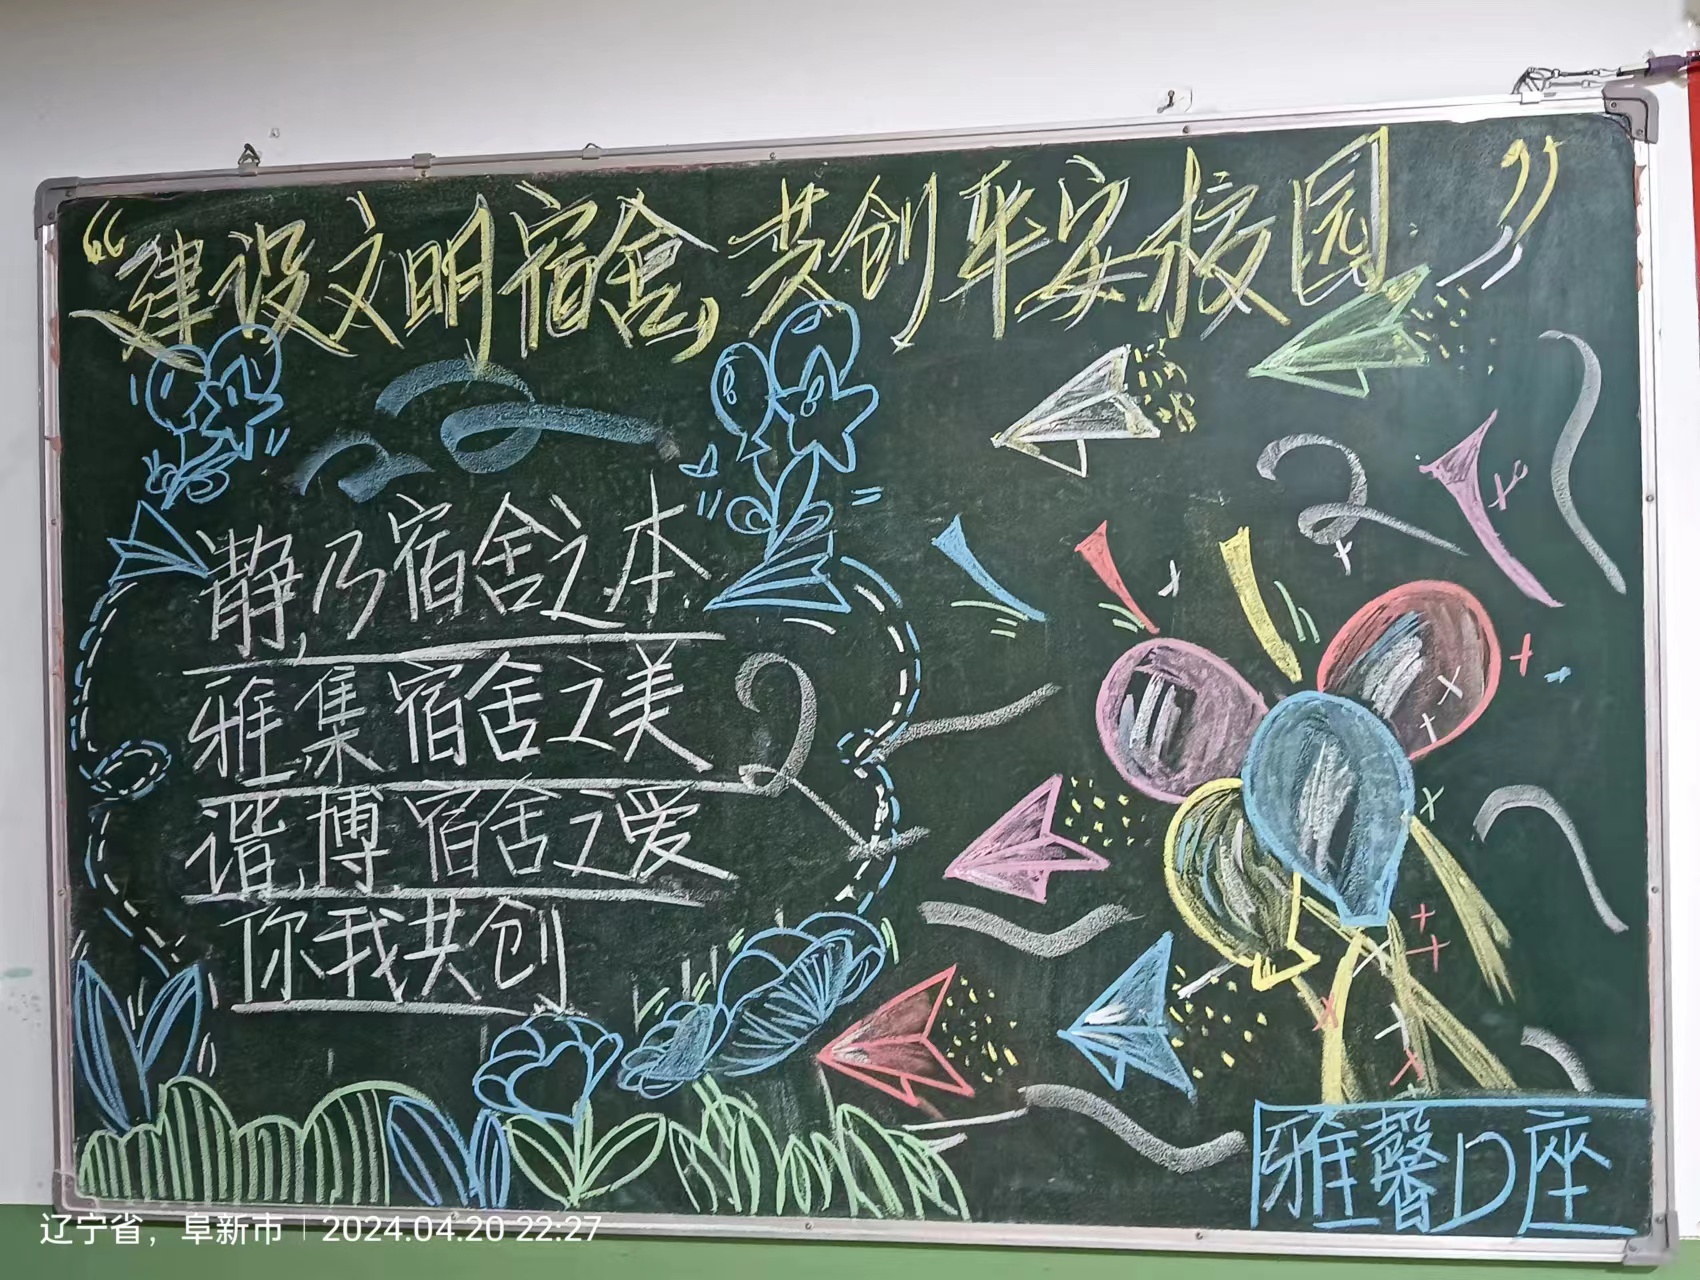 “建设文明宿舍,共创平安校园”
静,乃宿舍之本
雅集宿舍之美
谐,博宿舍之爱
你我共创
雅馨D座
辽宁省，阜新市 | 2024.04.20 22:27